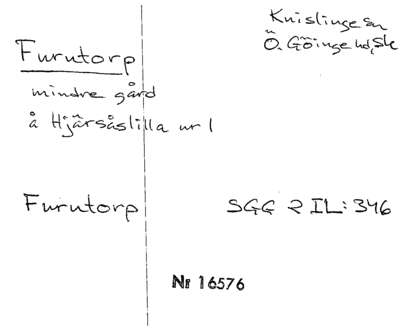 Knislinge sn
Ö. Göinge hd, Sk
Furutorp
mindre gård
å Hjärsåslilla nr 1
Furutorp SGG 2 IL: 346
Nr 16576